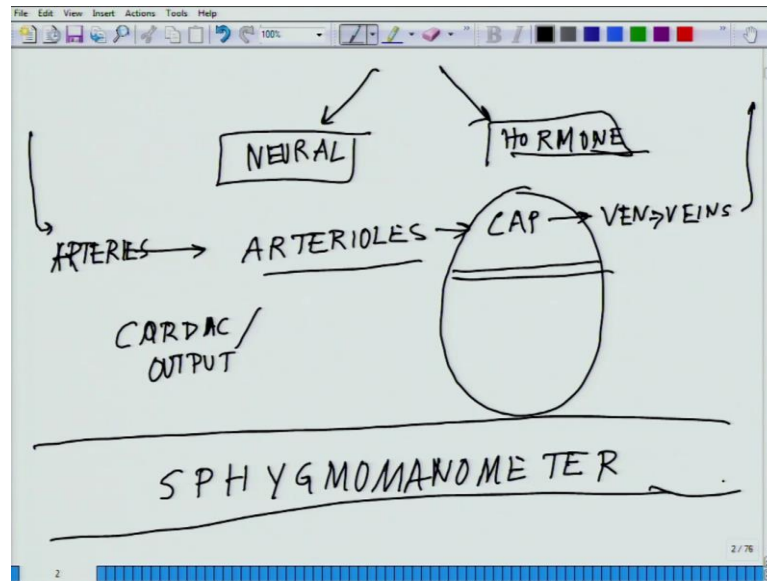 File Edit View Insert Actions Tools Help
100%
B I
NEURAL
HORMONE
ARTERIES ARTERIOLES CAP VEN VEINS
CARDAC
OUTPUT
SPHYGMOMANOMETER
2/76
2